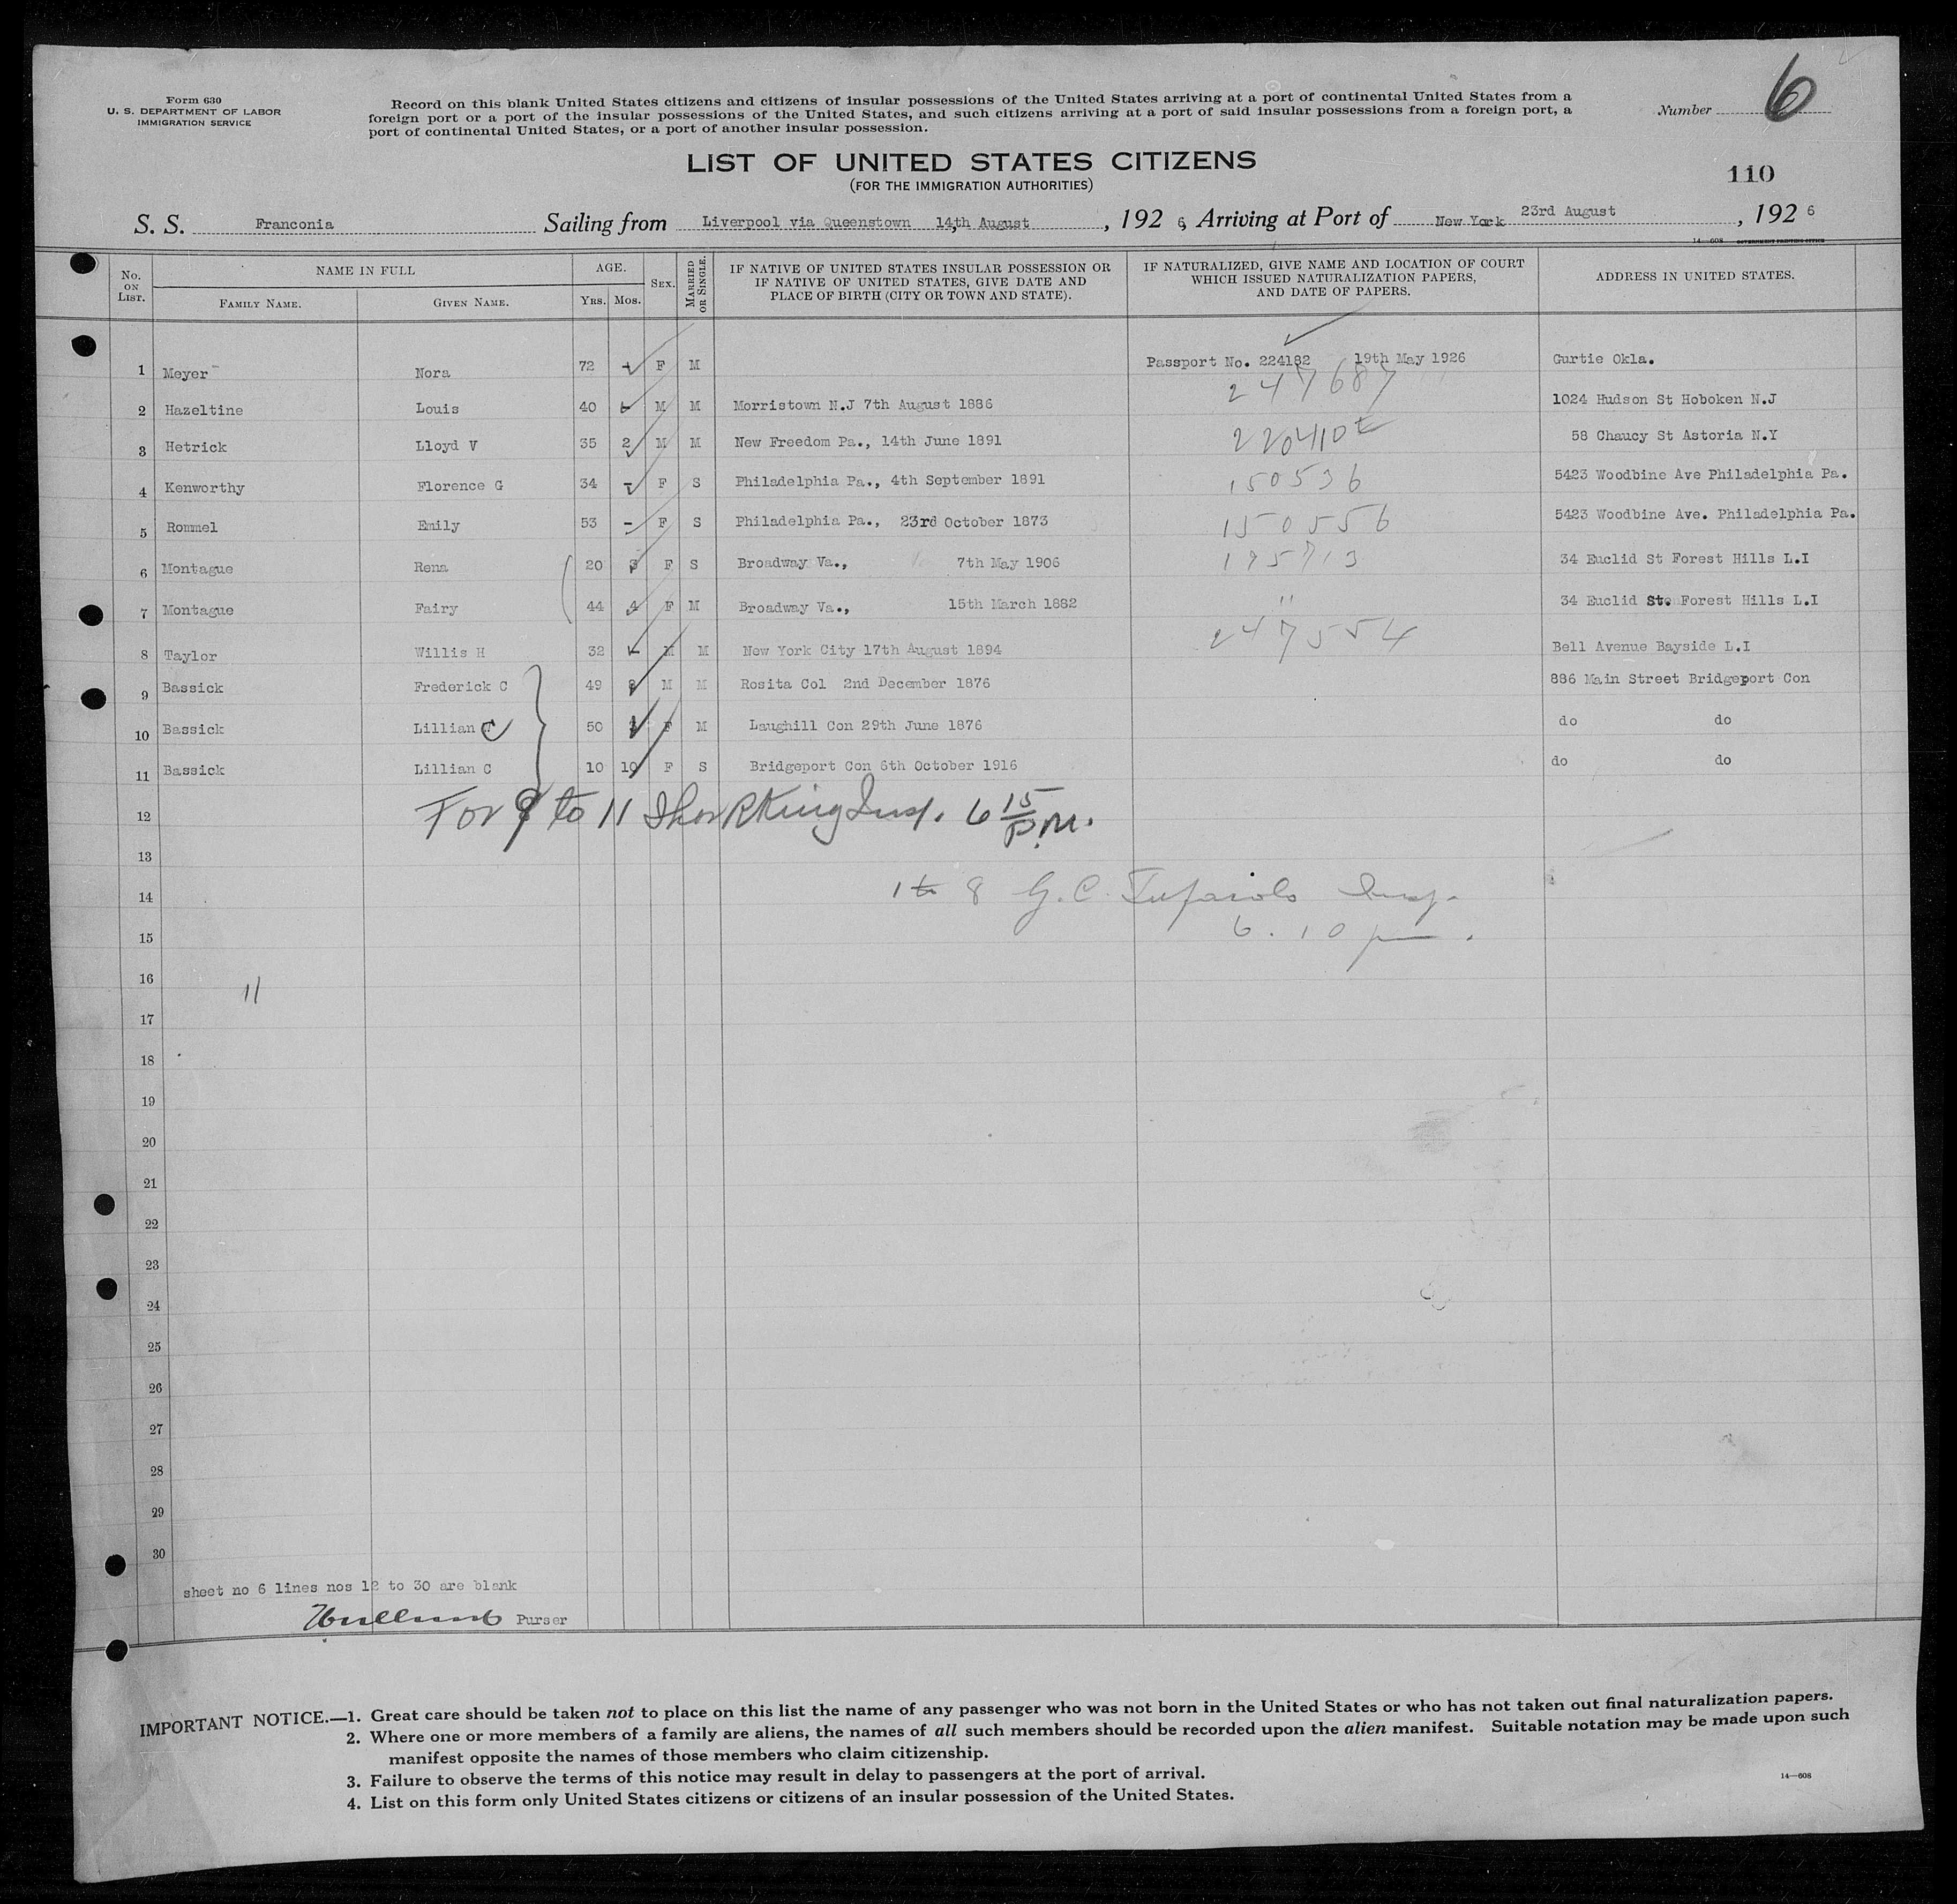 Form 630
U. S. DEPARTMENT OF LABOR
IMMIGRATION SERVICE
Record on this blank United States citizens and citizens of insular possessions of the United States arriving at a port of continental United States from a
foreign port or a port of the insular possessions of the United States, and such citizens arriving at a port of said insular possessions from a foreign port, a
port of continental United States, or a port of another insular possession.
Number 6
LIST OF UNITED STATES CITIZENS
(FOR THE IMMIGRATION AUTHORITIES)
110
S. S. Franconia Sailing from Liverpool via Queenstown 14th August, 192 6, Arriving at Port of New York 23rd August, 192 6
14—608 GOVERNMENT PRINTING OFFICE
No. ON LIST. NAME IN FULL FAMILY NAME. GIVEN NAME. AGE. YRS. MOS. SEX. MARRIED OR SINGLE. IF NATIVE OF UNITED STATES INSULAR POSSESSION OR IF NATIVE OF UNITED STATES, GIVE DATE AND PLACE OF BIRTH (CITY OR TOWN AND STATE). IF NATURALIZED, GIVE NAME AND LOCATION OF COURT WHICH ISSUED NATURALIZATION PAPERS, AND DATE OF PAPERS. ADDRESS IN UNITED STATES.
1 Meyer Nora 72 F M Passport No. 224182 19th May 1926 Gurtie Okla.
2 Hazeltine Louis 40 M M Morristown N.J 7th August 1886 247687 1024 Hudson St Hoboken N.J
3 Hetrick Lloyd V 35 2 M M New Freedom Pa., 14th June 1891 220410 58 Chaucy St Astoria N.Y
4 Kenworthy Florence G 34 - F S Philadelphia Pa., 4th September 1891 150536 5423 Woodbine Ave Philadelphia Pa.
5 Rommel Emily 53 - F S Philadelphia Pa., 23rd October 1873 150556 5423 Woodbine Ave. Philadelphia Pa.
6 Montague Rena 20 3 F S Broadway Va., 7th May 1906 195713 34 Euclid St Forest Hills L.I
7 Montague Fairy 44 4 F M Broadway Va., 15th March 1882 " 34 Euclid St. Forest Hills L.I
8 Taylor Willis H 32 M M New York City 17th August 1894 247554 Bell Avenue Bayside L.I
9 Bassick Frederick C 49 8 M M Rosita Col 2nd December 1876 886 Main Street Bridgeport Con
10 Bassick Lillian C 50 F M Laughill Con 29th June 1876 do do
11 Bassick Lillian C 10 10 F S Bridgeport Con 6th October 1916 do do
12 For 9 to 11 Insp. 6 15 P.M.
13
14 1 to 8 G. C. Insp.
15 6.10 pm.
16 11
17
18
19
20
21
22
23
24
25
26
27
28
29
30
sheet no 6 lines nos 12 to 30 are blank
Purser
IMPORTANT NOTICE.—1. Great care should be taken not to place on this list the name of any passenger who was not born in the United States or who has not taken out final naturalization papers.
2. Where one or more members of a family are aliens, the names of all such members should be recorded upon the alien manifest. Suitable notation may be made upon such
manifest opposite the names of those members who claim citizenship.
3. Failure to observe the terms of this notice may result in delay to passengers at the port of arrival.
4. List on this form only United States citizens or citizens of an insular possession of the United States.
14—608